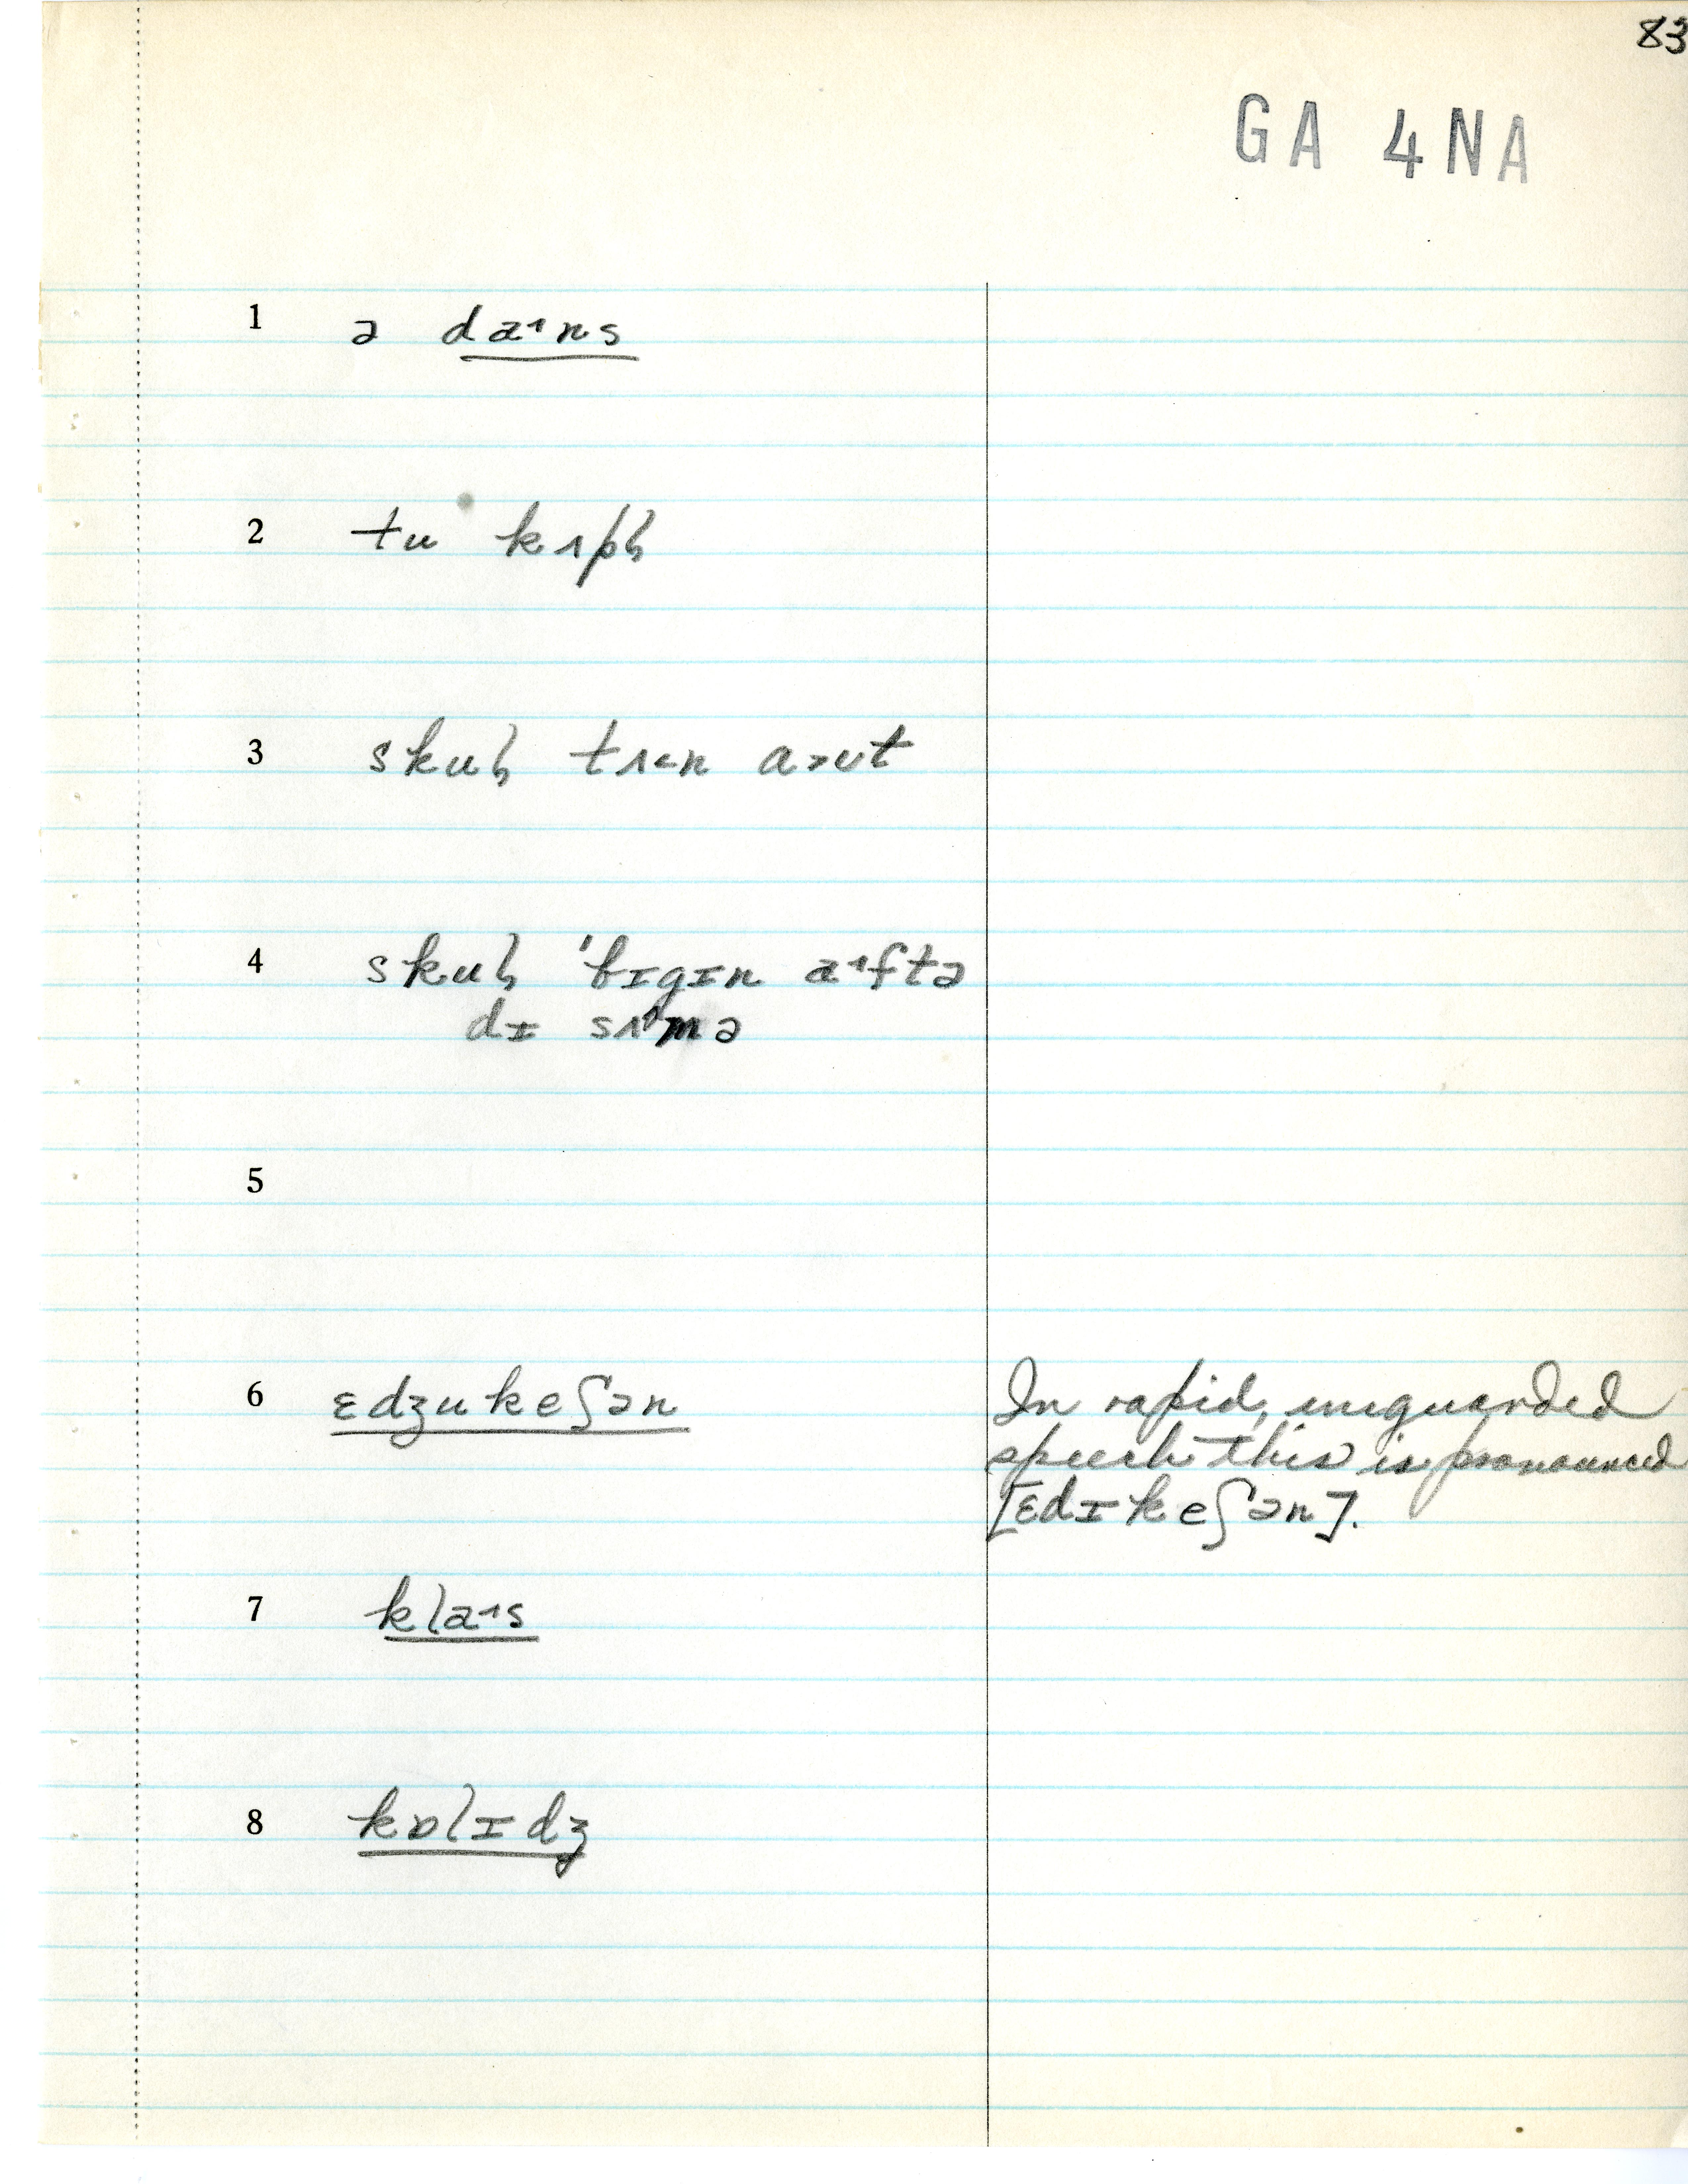 83
GA 4NA
1 ə da˄ns
2 tu kʌpɭ
3 skuɭ tʌ˂n a˃ut
4 skuɭ 'bɪgɪn a˄ftə
dɪ sʌ˄mə
5
6 ɛdʒukeʃən
In rapid, unguarded
speech this is pronounced
[ɛdɪkeʃən].
7 kla˄s
8 kɒlɪdʒ